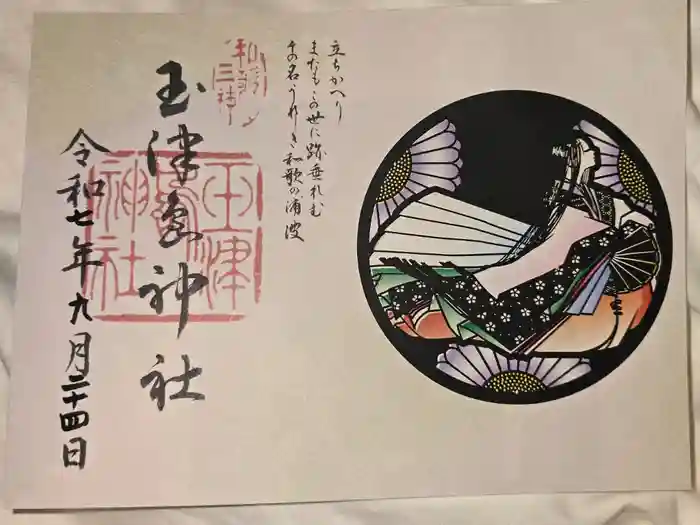 立ちかへり
またもこの世に跡垂れむ
その名うれしき和歌の浦波
和歌三神
玉津島神社
玉津島神社
令和七年九月二十四日